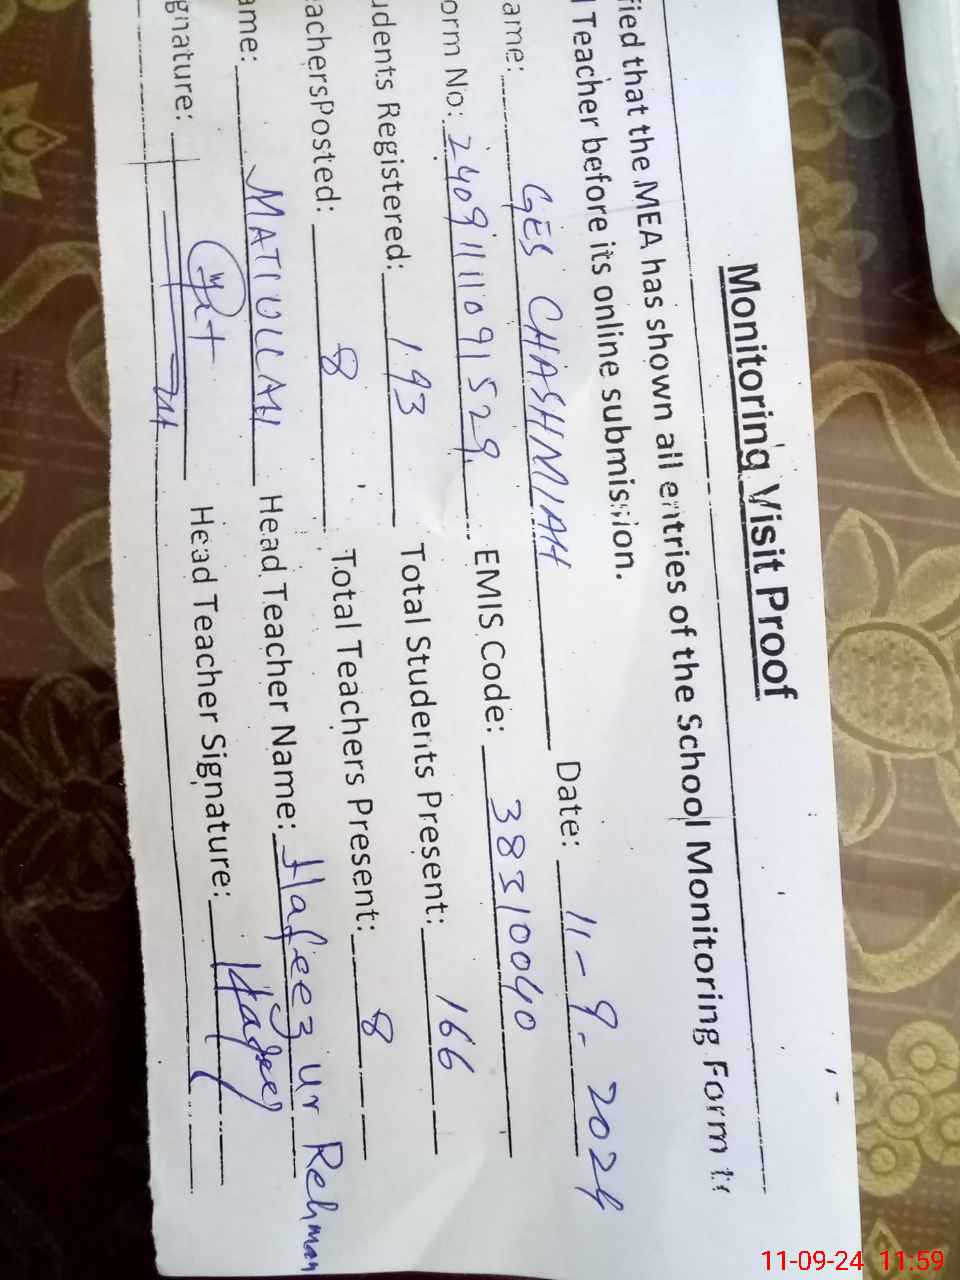 Monitoring Visit Proof
fied that the MEA has shown all entries of the School Monitoring Form t
Teacher before its online submission.
ame: GES CHASHMIAH Date: 11-9-2024
orm No: 24091111091529 EMIS Code: 38310040
udents Registered: 193 Total Students Present: 166
eachersPosted: 8 Total Teachers Present: 8
ame: MATIULLAH Head Teacher Name: Hafeez ur Rehman
gnature: Head Teacher Signature: Hafeez
11-09-24 11:59